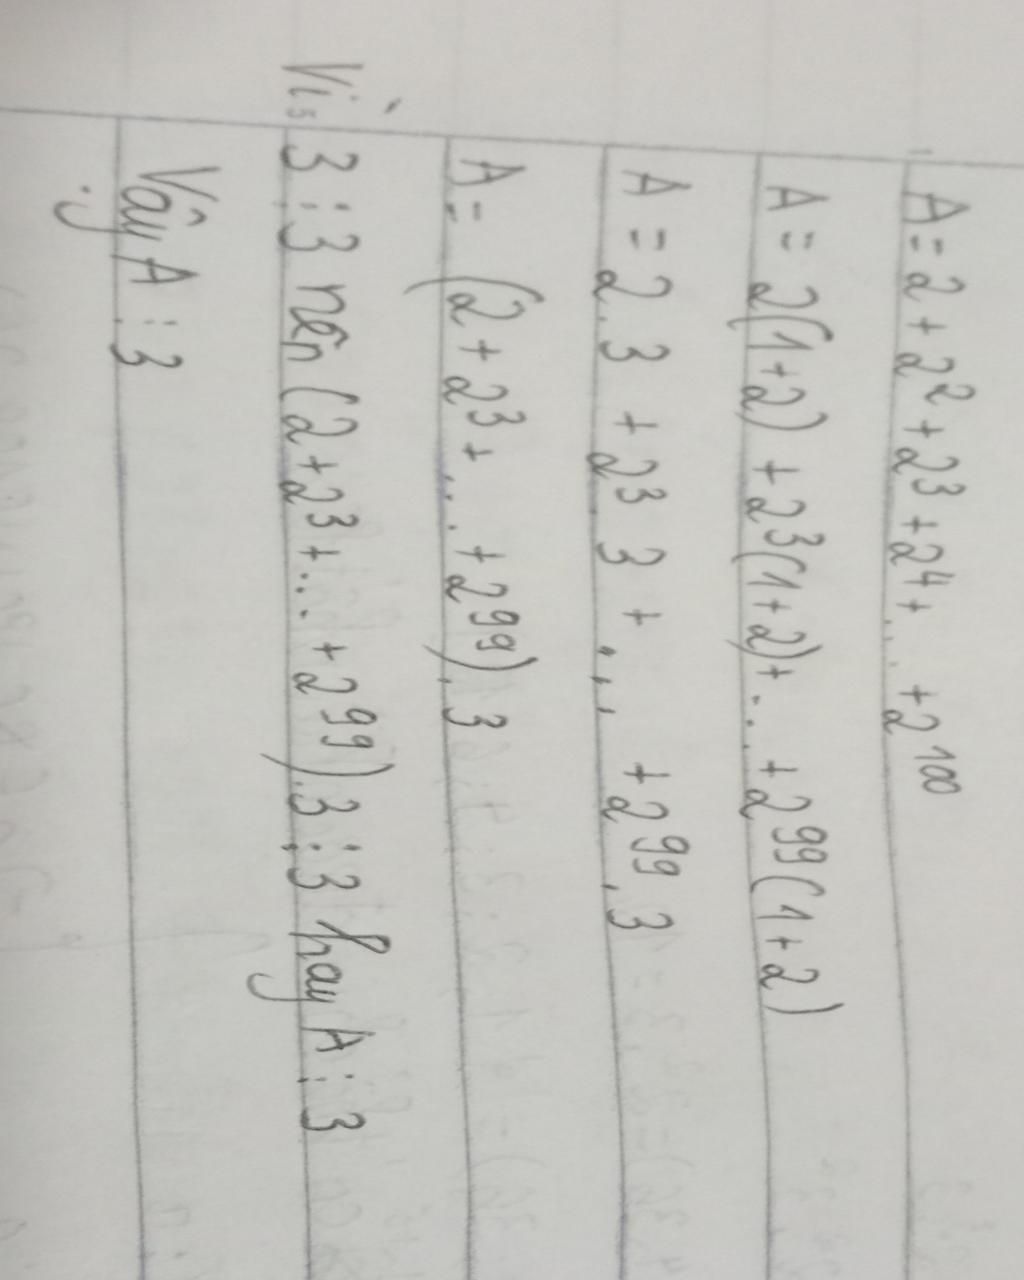 A = 2 + 2² + 2³ + 2⁴ + ... + 2¹⁰⁰
A = 2(1+2) + 2³(1+2) + ... + 2⁹⁹(1+2)
A = 2.3 + 2³.3 + ... + 2⁹⁹.3
A = (2 + 2³ + ... + 2⁹⁹).3
Vì 3 ⋮ 3 nên (2 + 2³ + ... + 2⁹⁹).3 ⋮ 3 hay A ⋮ 3
Vậy A ⋮ 3